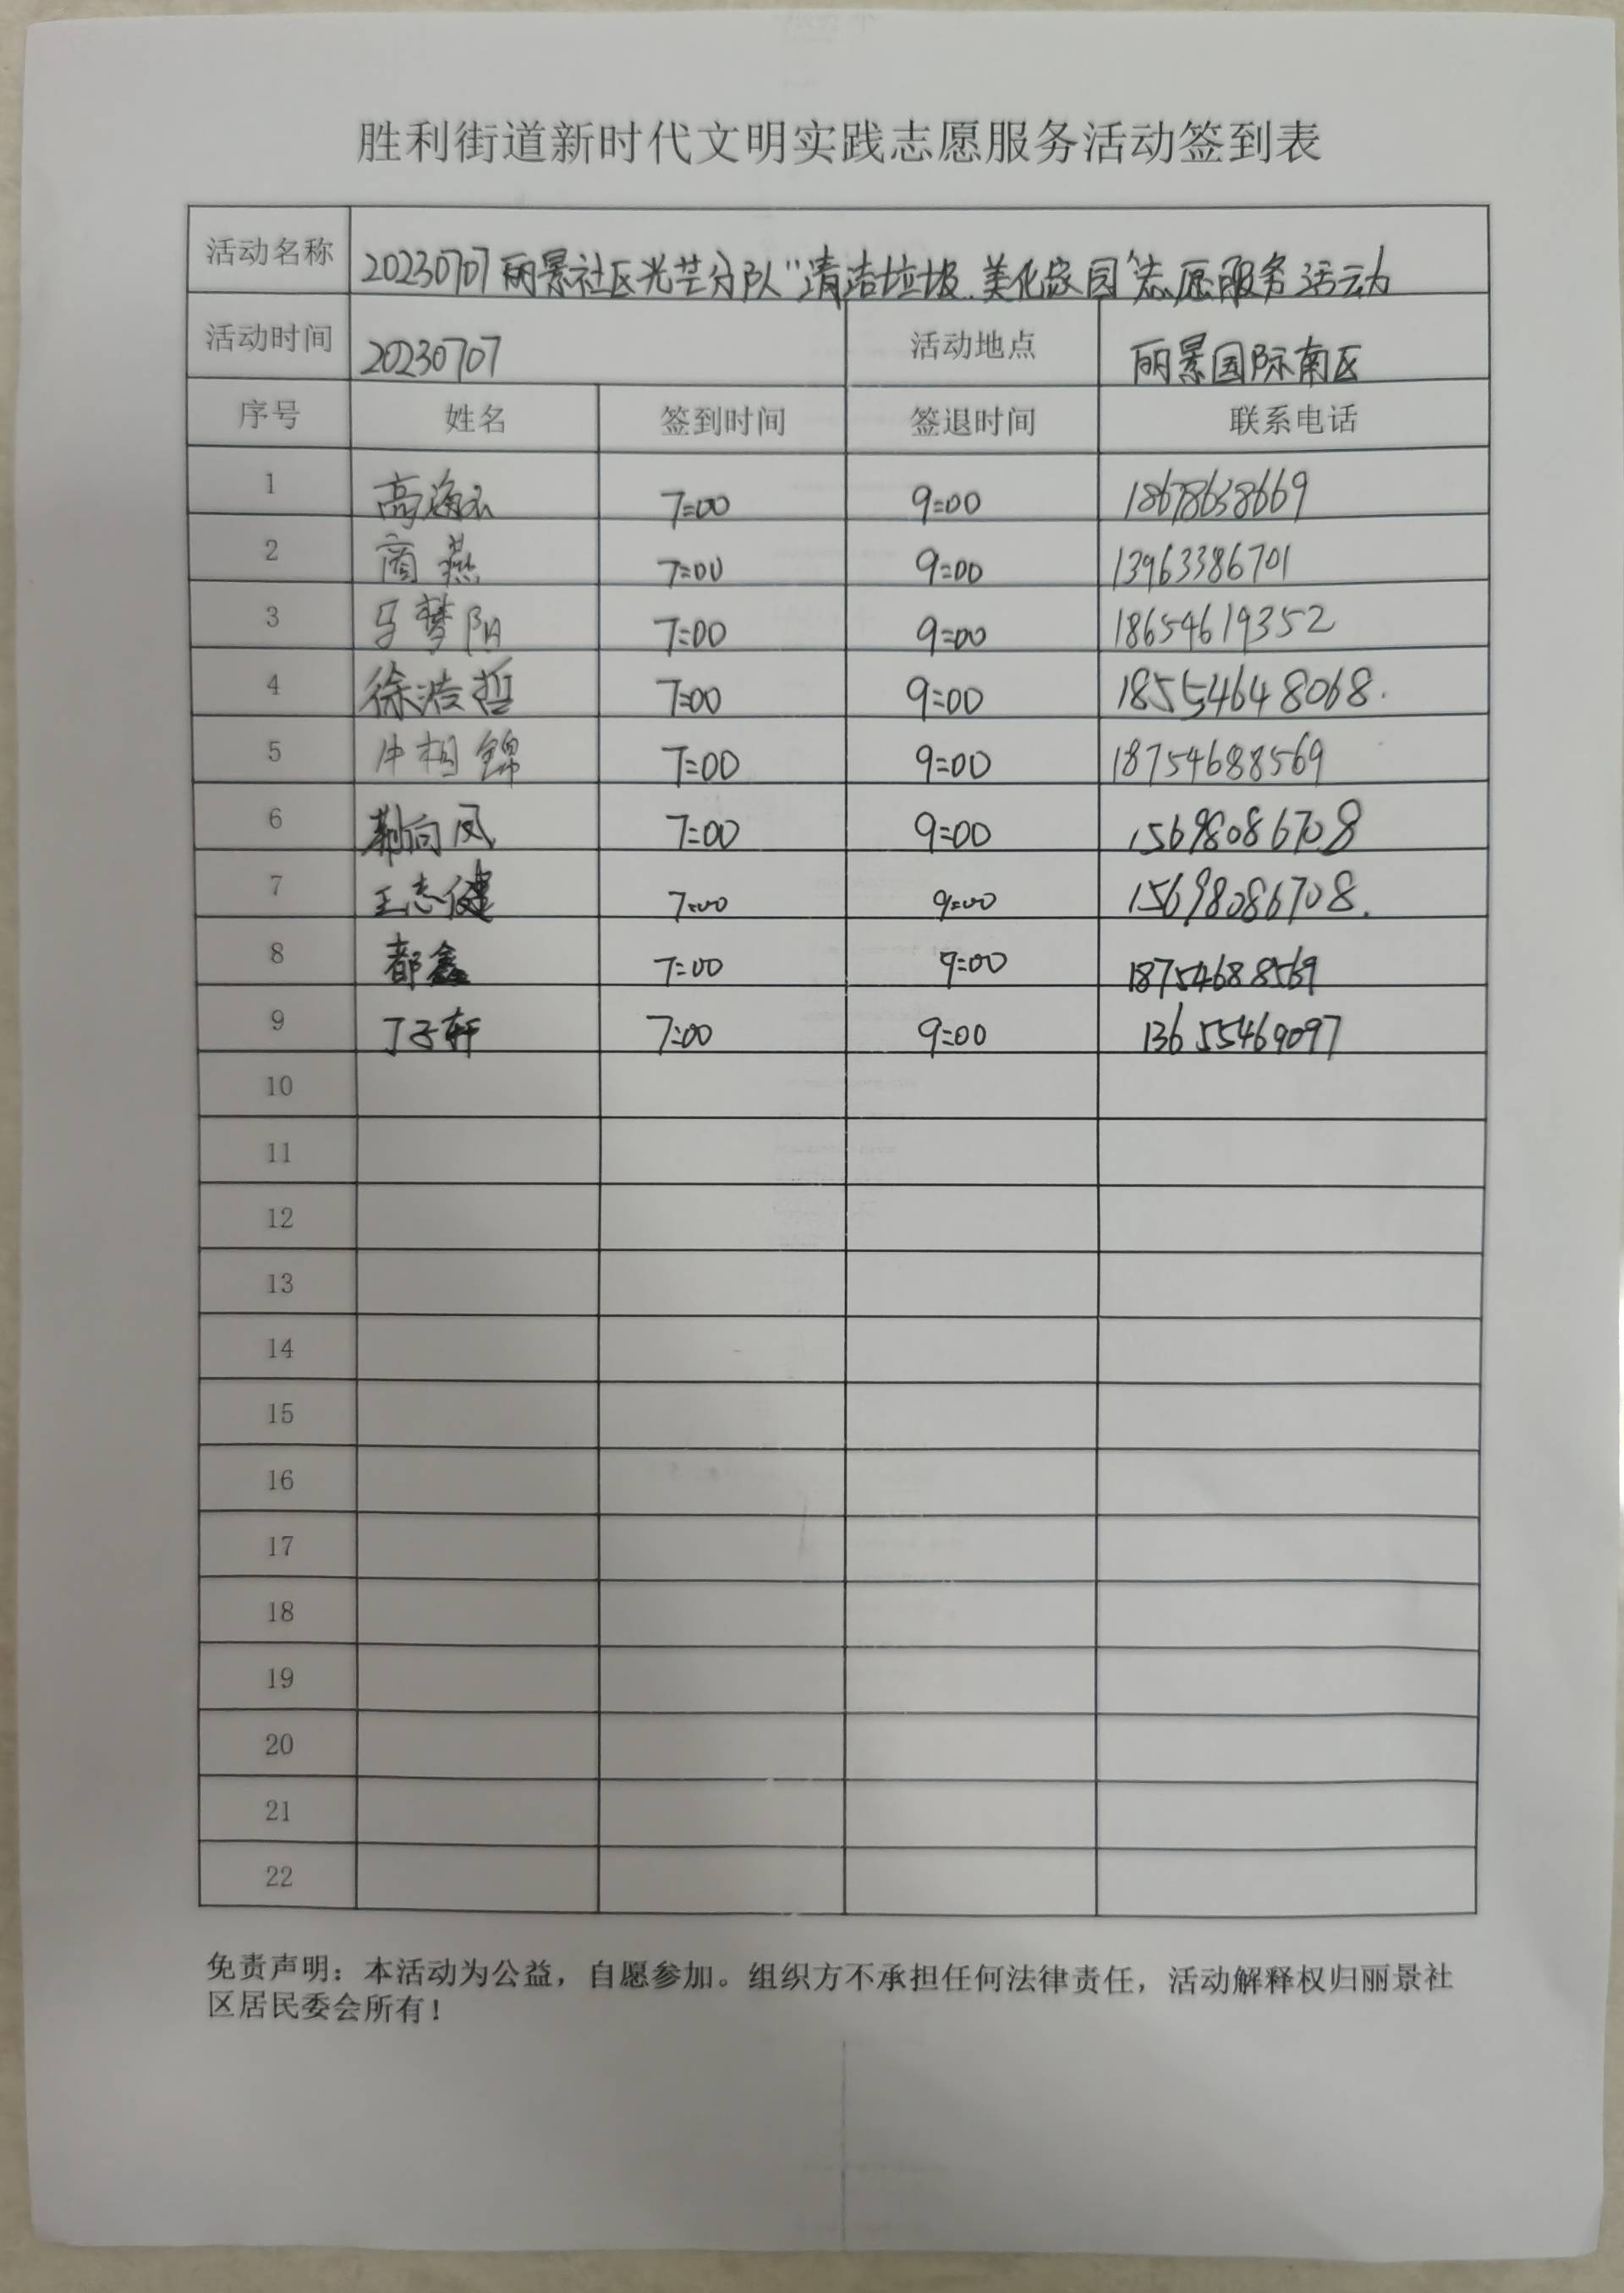 胜利街道新时代文明实践志愿服务活动签到表
活动名称 20230707丽景社区光芒分队“清洁垃圾.美化家园”志愿服务活动
活动时间 20230707 活动地点 丽景国际南区
序号 姓名 签到时间 签退时间 联系电话
1 高海 7:00 9:00 18678638669
2 商燕 7:00 9:00 13963386701
3 马梦阳 7:00 9:00 18654619352
4 徐浩哲 7:00 9:00 18554648068.
5 相锦 7:00 9:00 18754688569
6 靳向凤 7:00 9:00 15698086708
7 王志健 7:00 9:00 15698086708.
8 都鑫 7:00 9:00 18754688569
9 丁子轩 7:00 9:00 13655469097
10
11
12
13
14
15
16
17
18
19
20
21
22
免责声明：本活动为公益，自愿参加。组织方不承担任何法律责任，活动解释权归丽景社
区居民委会所有！